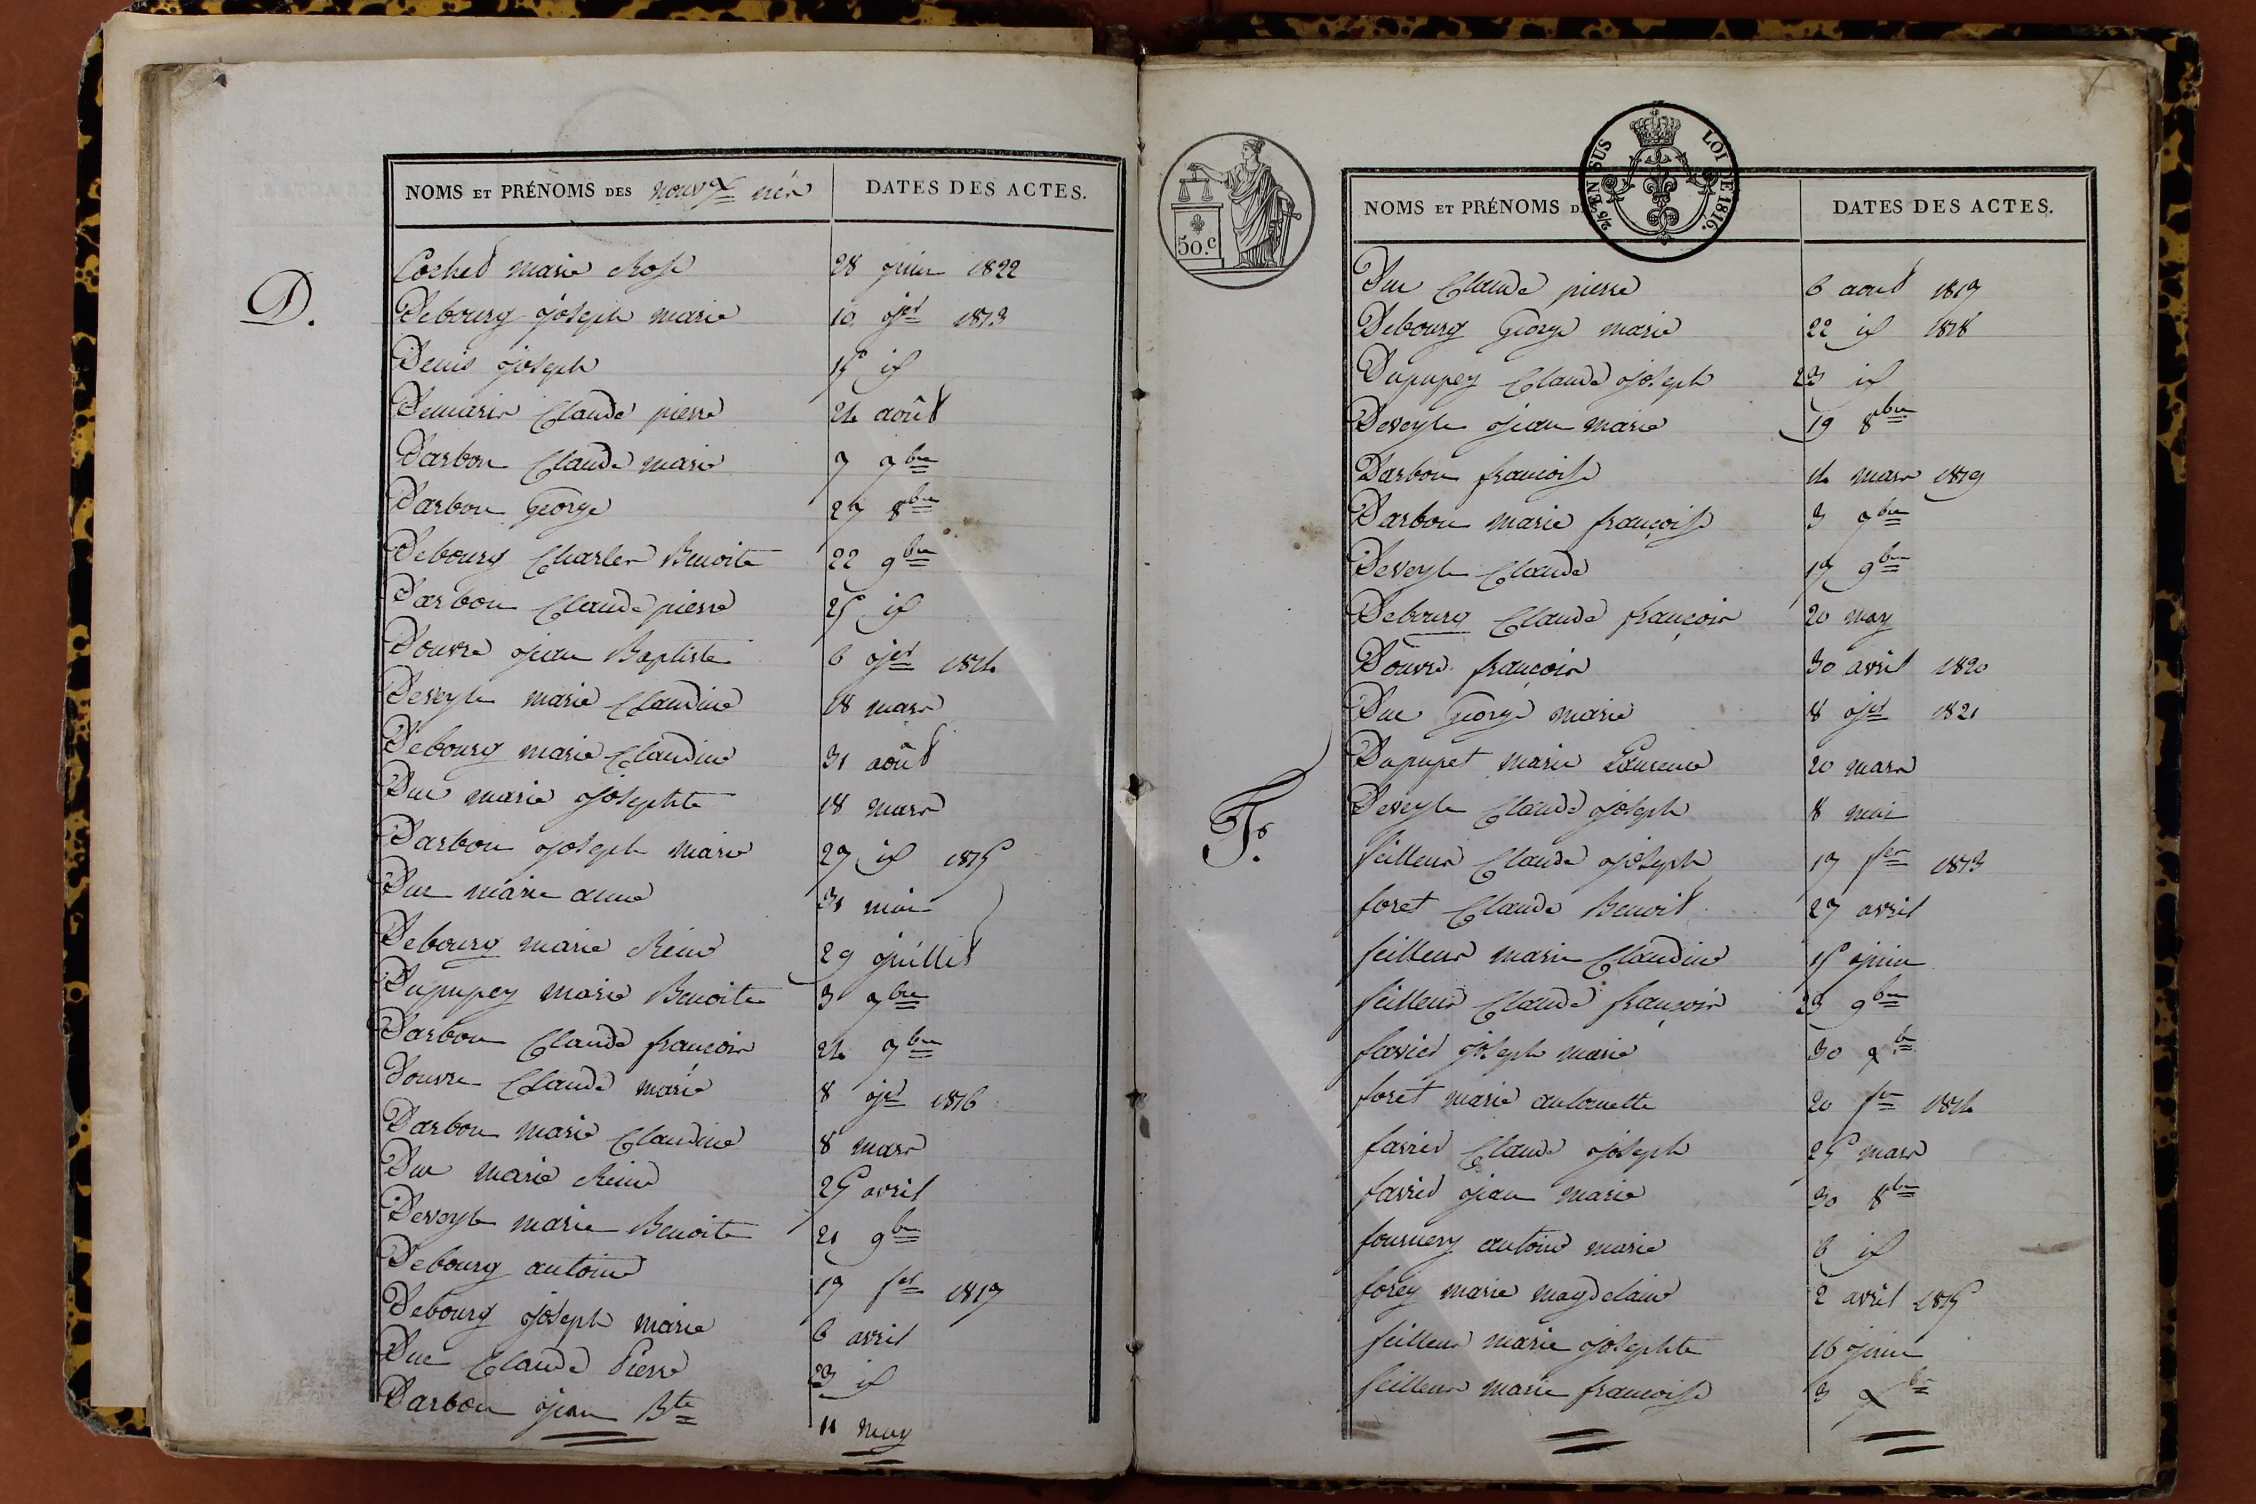 NOMS ET PRÉNOMS DES nouvx nés
DATES DES ACTES.
Cochet marie Rose 28 juin 1822
D.
Debourg joseph marie 10 jer 1813
Denis joseph 15 id
Demaris Claude pierre 24 août
Darbon Claude marie 7 7bre
Darbon George 27 8bre
Debourg Charles Benoite 22 9bre
Darbon Claude pierre 25 id
Douvre jean Baptiste 6 jer 1814
Deveyle marie Claudine 18 mars
Debourg marie Claudine 31 août
Duc marie josephte 18 mars
Darbon joseph marie 27 id 1815
Duc marie anne 31 mai
Debourg marie Reine 29 juillet
Dupupey marie Benoite 3 7bre
Darbon Claude francois 24 7bre
Douvre Claude marie 8 jer 1816
Darbon marie Claudine 8 mars
Duc marie Reine 25 avril
Deveyle marie Benoite 21 9bre
Debourg antoine 17 fer 1817
Debourg joseph marie 6 avril
Duc Claude Pierre 23 id
Darbon jean Bte 11 may
50.c
EN SUS LOI DE 1816.
NOMS ET PRÉNOMS D
DATES DES ACTES.
Duc Claude pierre 6 aout 1817
Debourg George marie 22 id 1818
Dupupey Claude joseph 23 id
Deveyle jean marie 19 8bre
Darbon francoise 14 mars 1819
Darbon marie françoise 3 7bre
Deveyle Claude 17 9bre
Debourg Claude françois 20 may
Douvre françois 30 avril 1820
Duc George marie 8 jer 1821
Dupupet marie Laurence 20 mars
Deveyle Claude joseph 8 mai
F.
feilleur Claude joseph 17 fer 1813
foret Claude Benoit 27 avril
feilleur marie Claudine 15 juin
feilleur Claude françois 23 9bre
favier joseph marie 30 xb
foret marie antoinette 20 fer 1814
favier Claude joseph 25 mars
favier jean marie 30 8bre
fournery antoine marie 6 id
forey marie magdelaine 2 avril 1815
feilleur marie josephte 16 juin
feilleur marie francoise 3 xbr